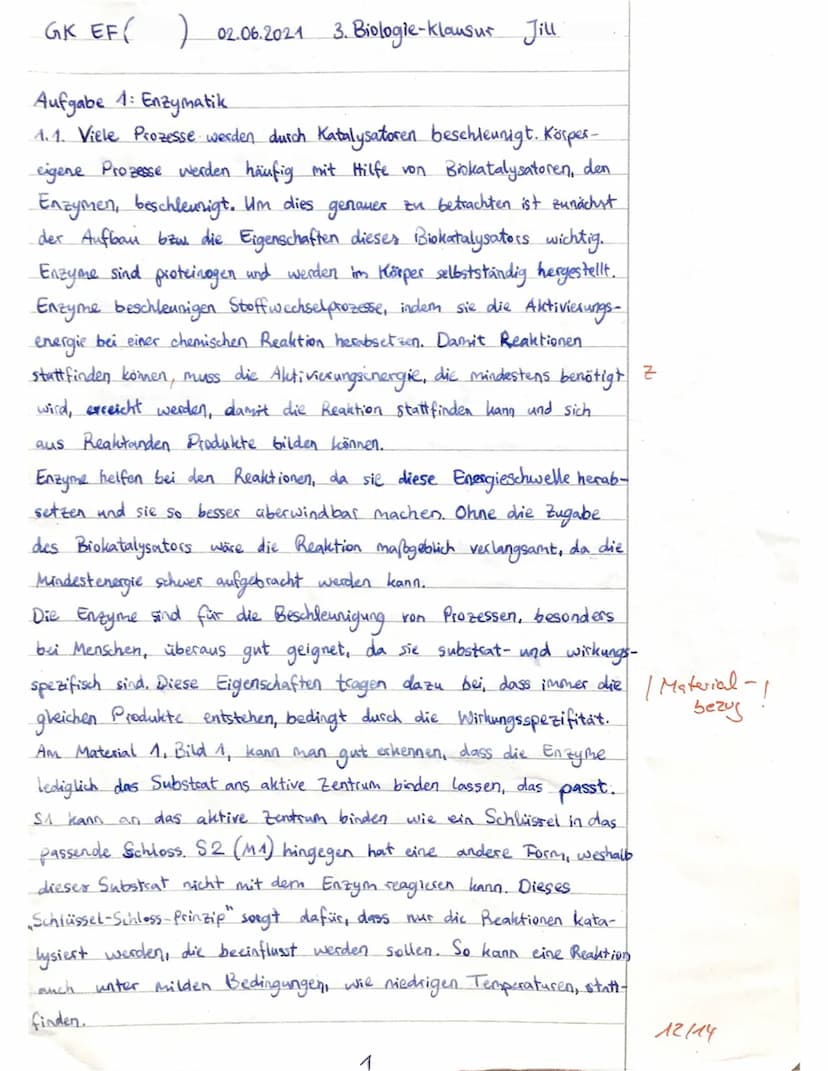 GK EF( ) 02.06.2021 3. Biologie-Klausur Jill
Aufgabe 1: Enzymatik
1.1. Viele Prozesse werden durch Katalysatoren beschleunigt. Körper-
eigene Prozesse werden häufig mit Hilfe von Biokatalysatoren, den
Enzymen, beschleunigt. Um dies genauer zu betrachten ist zunächst
der Aufbau bzw. die Eigenschaften dieses Biokatalysators wichtig.
Enzyme sind proteinogen und werden im Körper selbstständig hergestellt.
Enzyme beschleunigen Stoffwechselprozesse, indem sie die Aktivierungs-
energie bei einer chemischen Reaktion herabsetzen. Damit Reaktionen
stattfinden können, muss die Aktivierungsenergie, die mindestens benötigt Z
wird, erreicht werden, damit die Reaktion stattfinden kann und sich
aus Reaktanden Produkte bilden können.
Enzyme helfen bei den Reaktionen, da sie diese Energieschwelle herab-
setzen und sie so besser überwindbar machen. Ohne die Zugabe
des Biokatalysators wäre die Reaktion maßgeblich verlangsamt, da die
Mindestenergie schwer aufgebracht werden kann.
Die Enzyme sind für die Beschleunigung von Prozessen, besonders
bei Menschen, überaus gut geignet, da sie substrat- und wirkungs-
spezifisch sind. Diese Eigenschaften tragen dazu bei, dass immer die
gleichen Produkte entstehen, bedingt durch die Wirkungsspezifität.
Material-!
bezug
Am Material 1, Bild 1, kann man gut erkennen, dass die Enzyme
lediglich das Substrat ans aktive Zentrum binden lassen, das passt.
S1 kann an das aktive Zentrum binden wie ein Schlüssel in das
passende Schloss. S2 (M1) hingegen hat eine andere Form, weshalb
dieser Substrat nicht mit dem Enzym reagieren kann. Dieses
„Schlüssel-Schloss-Prinzip" sorgt dafür, dass nur die Reaktionen kata-
lysiert werden, die beeinflusst werden sollen. So kann eine Reaktion
auch unter milden Bedingungen, wie niedrigen Temperaturen, statt-
finden.
12/14
1